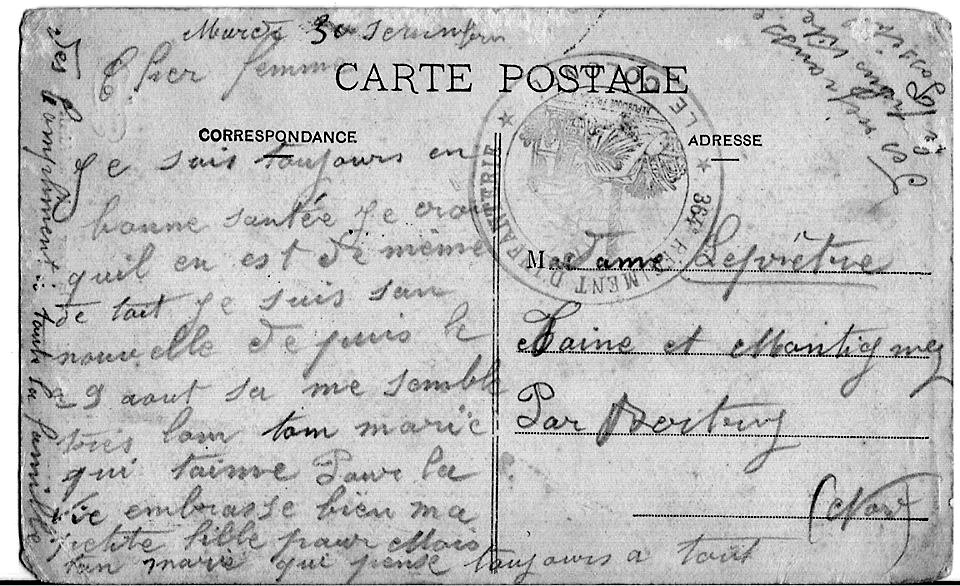 Mardi 30
Cher femme
CARTE POSTALE
CORRESPONDANCE
ADRESSE
Je suis toujours en
bonne santée Je croi
quil en est de même
de toit Je suis san
nouvelle depuis le
29 aout sa me semble
très lom tom marie
qui taime Pour la
vie embrasse bien ma
petite fille pour Mois
ton marie qui pense toujours a toit
des Compliment : toute la famille
364e REGIMENT D'INFANTERIE
Madame Leprêtre
et Montigmez
Par
(Nord)